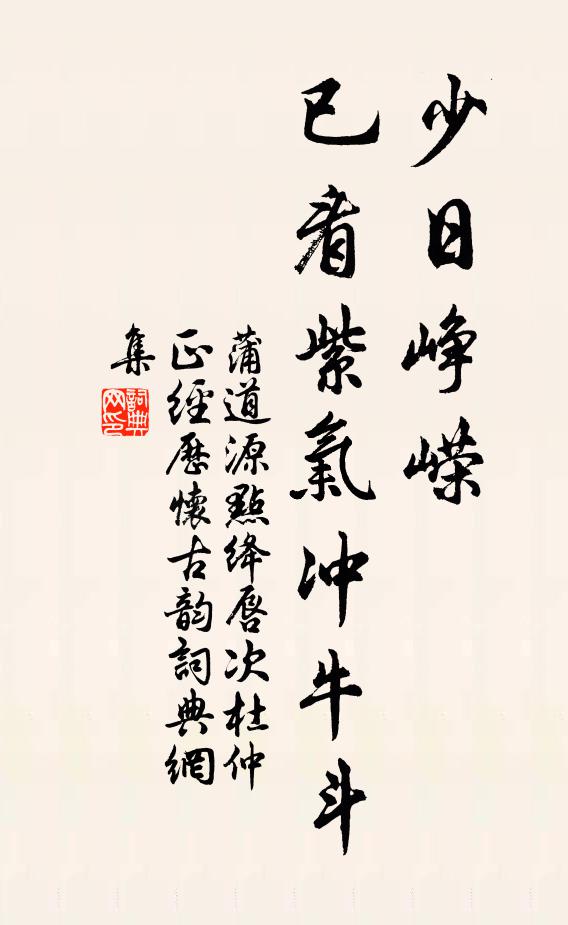 少日峥嵘
已看紫氣冲牛斗
蒲道源點绛唇次杜仲
正經歷懷古韵詞典網
集
詞典
网印